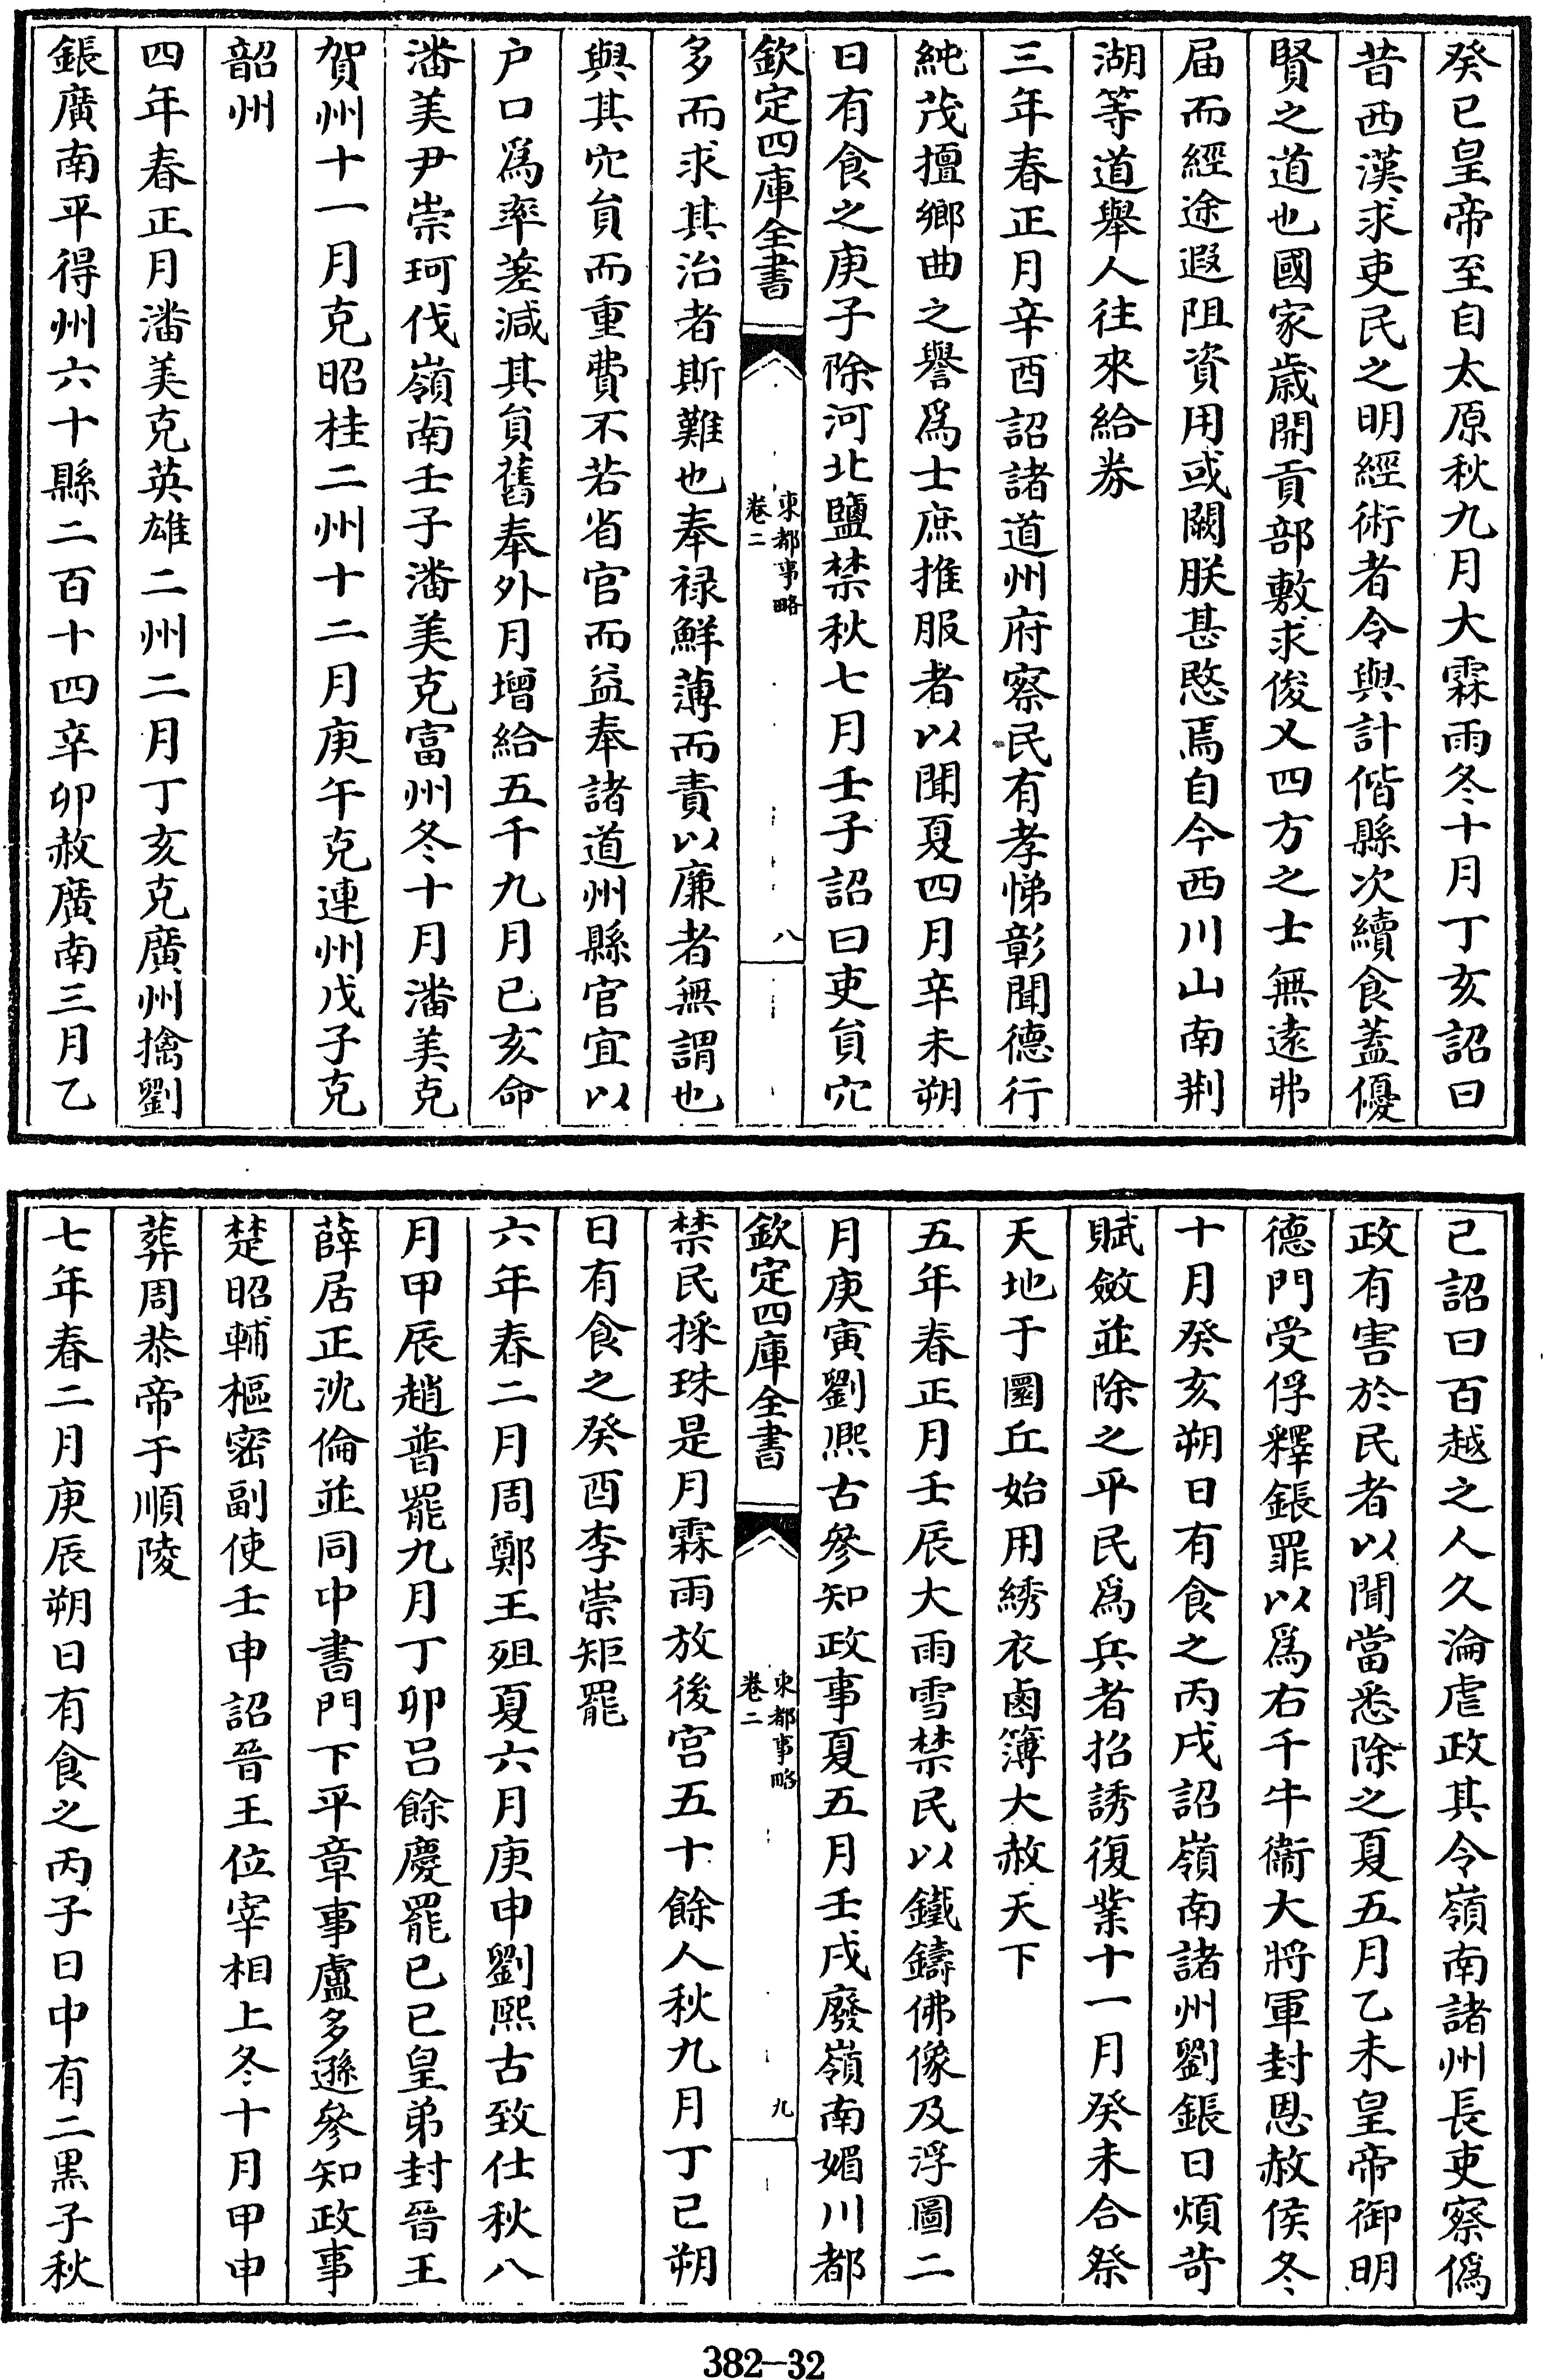 癸巳皇帝至自太原秋九月大霖雨冬十月丁亥詔曰
昔西漢求吏民之明經術者令與計偕縣次續食蓋優
賢之道也國家歳開貢部敷求俊乂四方之士無逺弗
届而經途遐阻資用或闕朕甚愍焉自今西川山南荆
湖等道舉人往來給券
三年春正月辛酉詔諸道州府察民有孝悌彰聞德行
純茂擅鄉曲之譽爲士庶推服者以聞夏四月辛未朔
日有食之庚子除河北鹽禁秋七月壬子詔曰吏貟宂
欽定四庫全書
東都事略
卷二
八
多而求其治者斯難也奉禄鮮薄而責以廉者無謂也
與其宂貟而重費不若省官而益奉諸道州縣官宜以
户口爲率差減其貟舊奉外月增給五千九月己亥命
潘美尹崇珂伐嶺南壬子潘美克富州冬十月潘美克
賀州十一月克昭桂二州十二月庚午克連州戊子克
韶州
四年春正月潘美克英雄二州二月丁亥克廣州擒劉
鋹廣南平得州六十縣二百十四辛卯赦廣南三月乙
巳詔曰百越之人久淪虐政其令嶺南諸州長吏察僞
政有害於民者以聞當悉除之夏五月乙未皇帝御明
德門受俘釋鋹罪以爲右千牛衞大將軍封恩赦侯冬
十月癸亥朔日有食之丙戌詔嶺南諸州劉鋹日煩苛
賦斂並除之平民爲兵者招誘復業十一月癸未合祭
天地于圜丘始用綉衣鹵簿大赦天下
五年春正月壬辰大雨雪禁民以鐵鑄佛像及浮圖二
月庚寅劉熈古參知政事夏五月壬戌廢嶺南媚川都
欽定四庫全書
東都事略
卷二
九
禁民採珠是月霖雨放後宫五十餘人秋九月丁巳朔
日有食之癸酉李崇矩罷
六年春二月周鄭王殂夏六月庚申劉熙古致仕秋八
月甲辰趙普罷九月丁卯吕餘慶罷己巳皇弟封晉王
薛居正沈倫並同中書門下平章事盧多遜參知政事
楚昭輔樞密副使壬申詔晉王位宰相上冬十月甲申
葬周恭帝于順陵
七年春二月庚辰朔日有食之丙子日中有二黒子秋
382-32